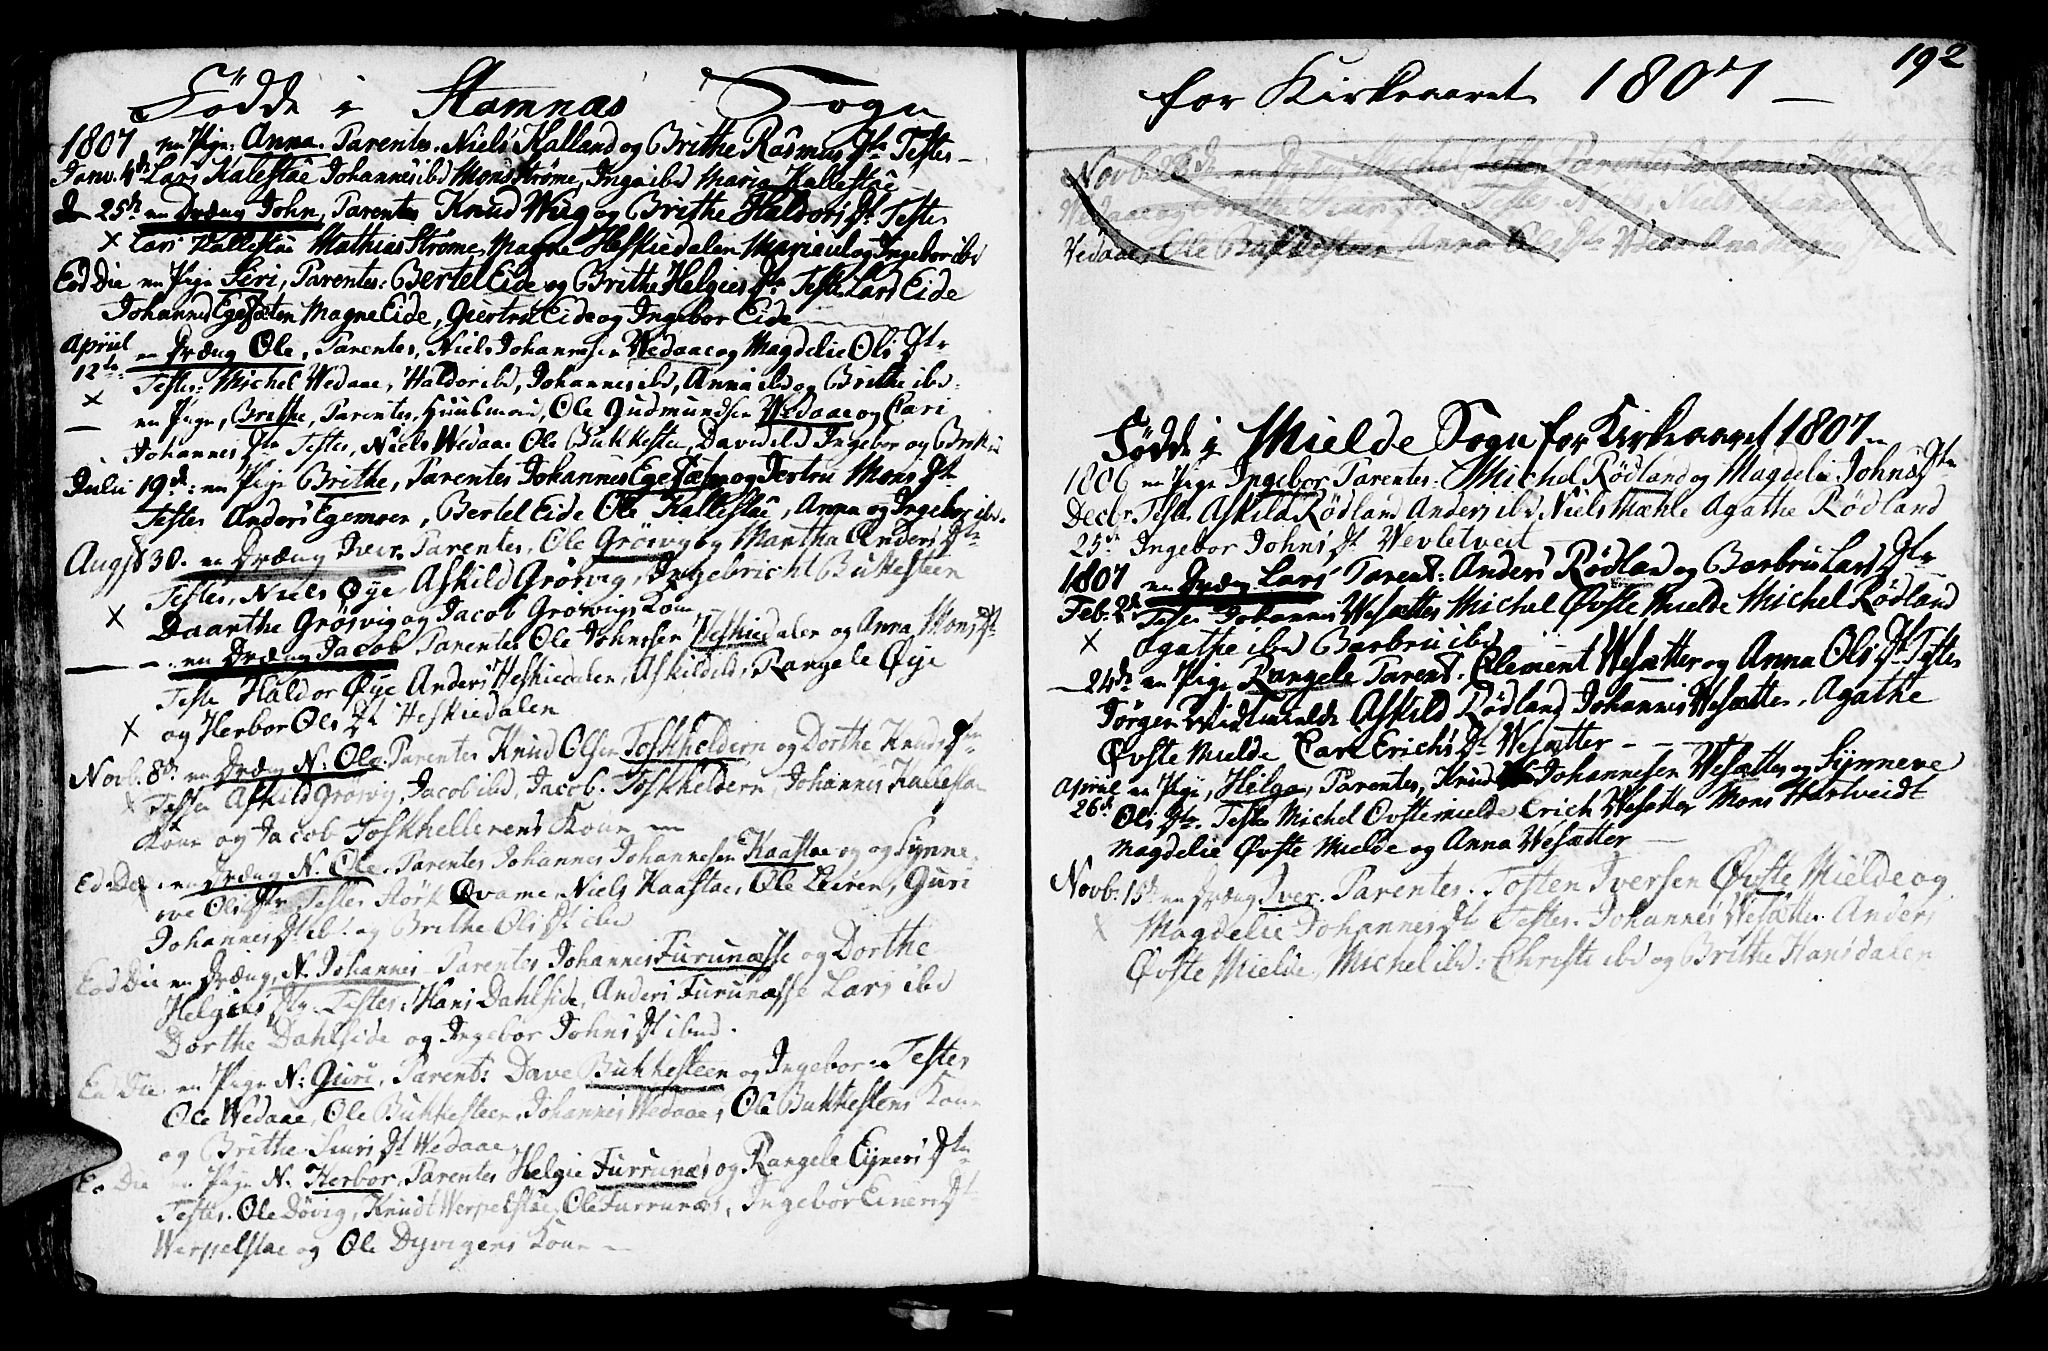 Födde i Stamnæs Sogn
1807 en Pige: Anna. Parentes. Niels Kalland og Brithe Rasmus Dtr Testes
Janv. 4de Lars Kalestae Johannes ibd Mons Strøme, Inga ibd Maria Kallestae
d 25de en Dræng John, Parentes Knud Wiig og Brithe Haldors Dtr Testes
× Lars Kallestae Mathias Strøme, Magne Heskiedalen og Ingebor ibd
Eod Die en Pige Seri, Parentes: Bertel Eide og Brithe Helgies Dtr Testes Lars Eide
Johannes Egesæten Magne Eide, Giertru Eide og Ingebor Eide
Apriil en Dræng Ole, Parentes, Niels Johannesen Wedaae og Magdelie Ols Dtr
12te Testes: Michel Wedaae, Haldor ibd, Johannes ibd, Anna ibd og Brithe ibd.
×
— en Pige, Brithe, Parentes, Huusmand, Ole Gudmundsen Wedaae og Cari
Johannes Dtr Testes, Niels Wedaae Ole Bukkesten, David ibd Ingebor og Brithe
Julii 19de: en Pige Brithe, Parentes Johannes Egesæten og Jertru Mons Dtr
Testes Anders Egemoen, Bertel Eide Ole Kallestae, Anna og Ingebor ibd.
Augst 30. en Dræng Iver. Parentes, Ole Grøsvig og Mantha Anders Dtr
Testes, Niels Øye, Askild Grøsvig, Ingebricht Bukkesteen
× Daarthe Grøsvig og Jacob Grøsvigs Kone
— — . en Dræng Jacob Parentes Ole Johnesen Heskiedalen og Anna Mons Dtr
Testes Haldor Øye Anders Heskiedalen, Askild ibd, Rangele Øye
× og Herbor Ols Dtr Heskiedalen
Novb. 8de en Dræng N: Ole. Parentes Knud Olsen Toskheldern og Dorthe Knuds Dtr
× Testes Askild Grøsvig, Jacob ibd, Jacob. Toskheldern, Johannes Kallestae
Kone og Jacob Toskhellerens Kone
Eod Die en Dræng N. Ole. Parentes Johannes Johannesen Kaastae og og Synne
ve Ols Dtr Testes Størk Qvame Niels Kaastae, Ole Leiren, Guri
Johannes Dtr ibd. og Brithe Ols Dtr ibd
Eod Die en Dræng, N. Johannes Parentes Johannes Furunæsse og Dorthe
Helgies Dtr Testes: Hans Dahlside, Anders Furunæsse Lars ibd
Dorthe Dahlside og Ingebor Johns Dtr ibid.
Eo Die en Pige N: Guri, Parent: Dave Bukkesteen og Ingebor Testes
Ole Wedaae, Ole Bukkesteen, Johannes Wedaae, Ole Bukkestens Kone
og Brithe Siurs Dtr Wedaae
Eo Die en Pige N. Herbor, Parentes Helgie Furrunæs og Rangele Eyners Dtr
Testes. Ole Døvig, Knudt Werpelstae, Ole Furrunæs, Ingebor Einers Dtr
Werpelstae og Ole Dyvigens Kone
192
for Kirkeaaret 1807
Novb. en Michel Parentes Johannes
Wedaae og Brithe Siurs Testes Niels
Wedaae, Ole Bukkesteen Anna Ols Dtr
Födde i Mielde Sogn for Kirkeaaret 1807
1806 en Pige Ingebor Parentes: Michel Rødland og Magdelie Johns Dtr
Decbr Testes Askild Rødland Anders ibd Niels Mæhle Agathe Rødland
25de Ingebor Johns Dtr Wevletveit
1807 en Dræng Lars Parent: Anders Rødland og Barbru Lars Dtr
Feb: 2de Testes Johannes Wesætter Michel Øvste Mielde Michel Rødland
× Agathe ibd Barbru ibd
— 24de en Pige Rangele Parent. Clement Wesætter og Anna Ols Dtr Testes
Jörgen Midtmielde Askild Rødland Johannes Wesætter, Agathe
Øvste Mielde Cari Erichs Dtr Wesætter
Apriil en Pige, Helga, Parentes, Knud Johannesen Wesætter og Synneve
26de Ols Dtr. Testes Michel Øvstemielde Erich Wesætter Mons Hartveidt
Magdelie Øvste Mielde og Anna Wesætter
Novb. 15de en Dræng Iver. Parentes. Tosten Iversen Øvste Mielde og
× Magdelie Johannes Dtr Testes. Johannes Wesætter Anders
Øvste Mielde, Michel ibd: Christi ibd og Brithe Hansdalen